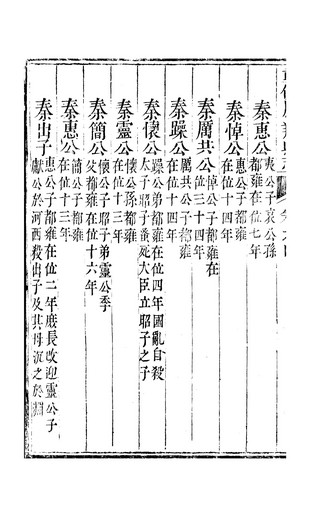 秦惠公夷公子哀公孫都雍在位七年
秦悼公惠公子都雍在位十四年
秦厲共公悼公子都雍在位三十四年
秦躁公厲共公子都雍在位十四年
秦懷公躁公弟都雍在位四年國亂自殺太子昭子蚤死大臣立昭子之子
秦靈公懷公孫都雍在位十三年
秦簡公懷公子昭子弟靈公季父都雍在位十六年
秦惠公簡公子都雍在位十三年
秦出子惠公子都雍在位二年庶長改迎靈公子獻公於河西殺出子及其母沉之於淵